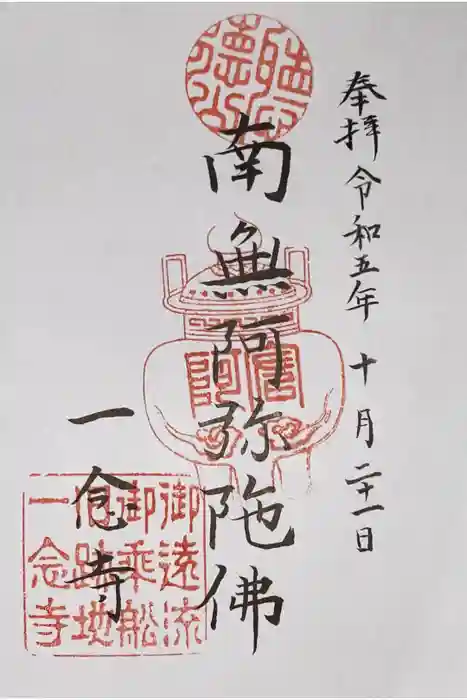 奉拝 令和五年 十月 二十一日
南無阿弥陀佛
一念寺
御遠流
御乗船
旧跡地
一念寺